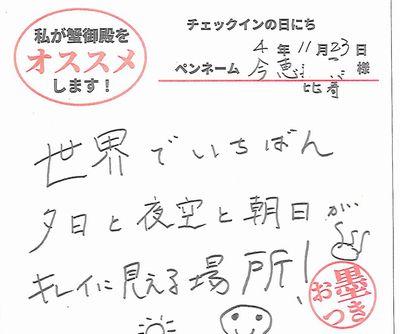 私が蟹御殿を
オススメ
します！
チェックインの日にち
4年11月23日
ペンネーム 今恵 様
世界でいちばん
夕日と夜空と朝日が
キレイに見える場所！
お墨つき